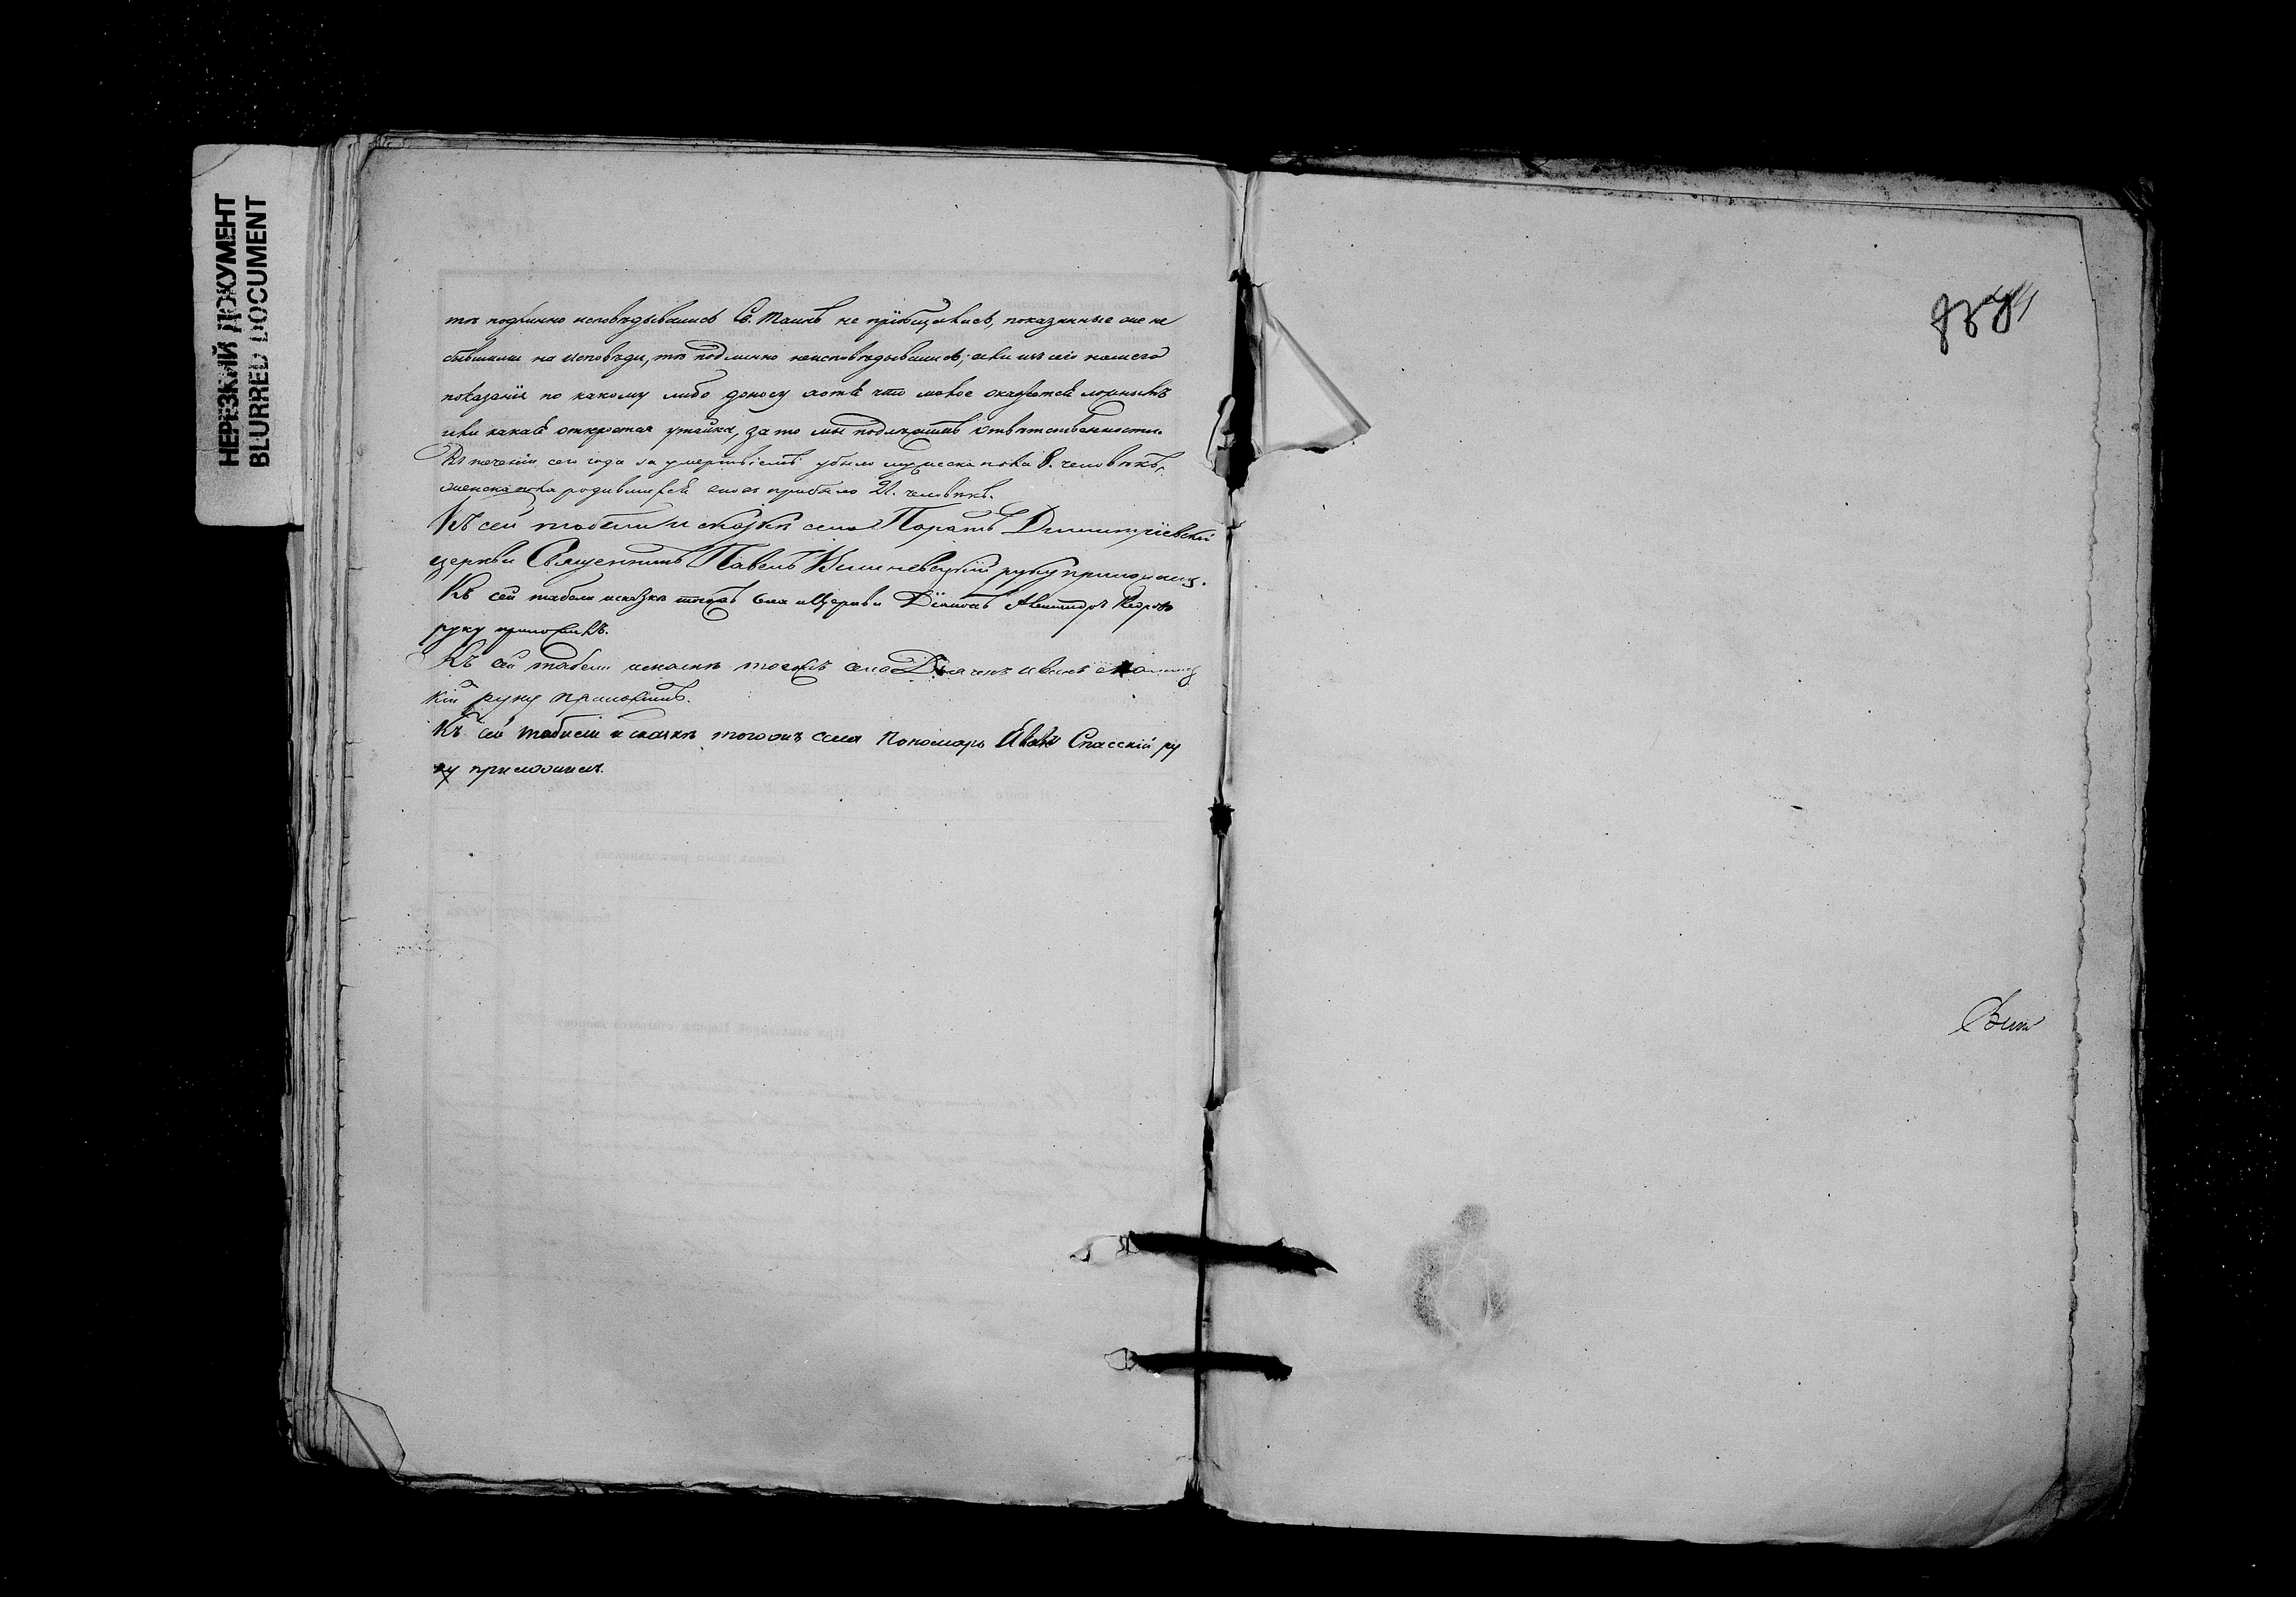 НЕРЕЗКИЙ ДОКУМЕНТ
BLURRED DOCUMENT
тѣ подлинно исповѣдывались Св. Таинъ не пріобщались, показанные же не
бывшими на исповѣди, тѣ подлинно неисповѣдывались; или изъ сего нашего
показанія по какому либо доносу хотя что малое окажется ложность
или какая откроется утайка, за то мы подлежимъ отвѣтственности.
Въ теченіи сего года за умертвіемъ убыло мужеска пола 8. человѣкъ,
женска пола родившихся вновь прибыло 21. человѣкъ.
Къ сей табели и сказкѣ села Паратъ Димитріевской
церкви Священникъ Павелъ руку приложилъ.
Къ сей табели и сказкѣ тогожъ села и Церкви Діаконъ
руку приложилъ.
Къ сей табели и сказкѣ тогожъ села Дьячекъ Иванъ
кій руку приложилъ.
Къ сей табели и сказкѣ тогожъ села Пономарь Иванъ Спасскій ру
ку приложилъ.